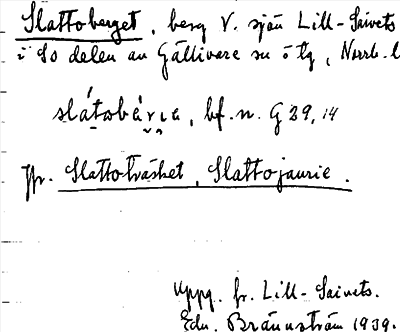 Slattoberget, berg V. sjön Lill-Saivets
i So delen av Gällivare sn ö tg, Norrb. l
slátobária, bf. n. G 29, 14
Jfr. Slattoträsket, Slattojaurie.
Uppg. fr. Lill-Saivets.
Edv. Brännström 1939.